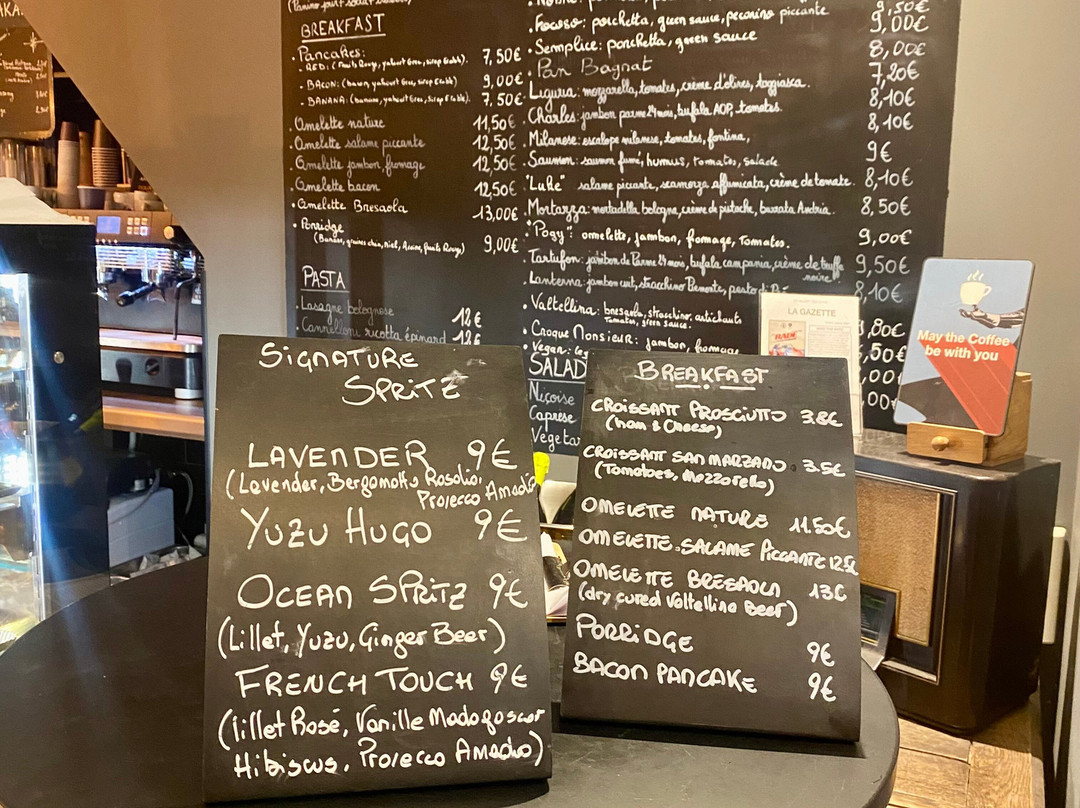 BREAKFAST
Pancakes:
. RED: (Fruits Rouge, yahourt Grec, Sirop Erable).
7,50€
. BACON: (bacon, yahourt Grec, Sirop Erable).
9,00€
. BANANA: (banane, yahourt Grec, Sirop Erable).
7,50€
. Omelette nature
11,50€
. Omelette salame piccante
12,50€
. Omelette jambon, fromage
12,50€
. Omelette bacon
12,50€
. Omelette Bresaola
13,00€
. Porridge
9,00€
PASTA
. Lasagne bolognese
12€
. Cannelloni ricotta épinard
12€
9,50€
. Focoso: porchetta, green sauce, peconino piccante
9,00€
. Semplice: porchetta, green sauce
8,00€
. Pan Bagnat
7,20€
. Liguria: mozzarella, tomates, crème d'olives, taggiasca.
8,10€
. Charles: jambon parme 24 mois, bufala AOP, tomates.
8,10€
. Milanese: escalope milanese, tomates, fontina,
9€
. Saumon: saumon fumé, humus, tomates, salade
8,10€
. "Luke" salame piccante, scamorza affumicata, crème de tomate.
8,50€
. Mortazza: mortadella bologne, crème de pistache, burrata Andria.
9,00€
. "Pogy": omelette, jambon, fromage, Tomates.
9,50€
. Tartufon: jambon de Parme 24 mois, bufala campania, crème de truffe noire.
8,10€
. Lanterna: jambon cuit, stracchino Piemonte, pesto di
,80€
. Valtellina: bresaola, stracchino, artichauts
Tomates, green sauce.
,50€
. Croque Monsieur: jambon, fromage
,00
. Vegan:
,00
SALAD
Niçoise
Caprese
Vegeta
LA GAZETTE
May the Coffee
be with you
SIGNATURE
SPRITZ
LAVENDER 9€
(Lavender, Bergamotto Rosolio,
Prosecco Amadio
YUZU HUGO 9€
OCEAN SPRITZ 9€
(Lillet, Yuzu, Ginger Beer)
FRENCH TOUCH 9€
(Lillet Rosé, Vanille Madagascar
Hibiscus, Prosecco Amadio)
BREAKFAST
CROISSANT PROSCIUTTO 3.8€
(ham & Cheese)
CROISSANT SAN MARZANO 3.5€
(Tomatoes, Mozzarella)
OMELETTE NATURE 11.50€
OMELETTE SALAME PICCANTE 12.5€
OMELETTE BRESAOLA 13€
(dry cured Valtellina Beef)
PORRIDGE 9€
BACON PANCAKE 9€